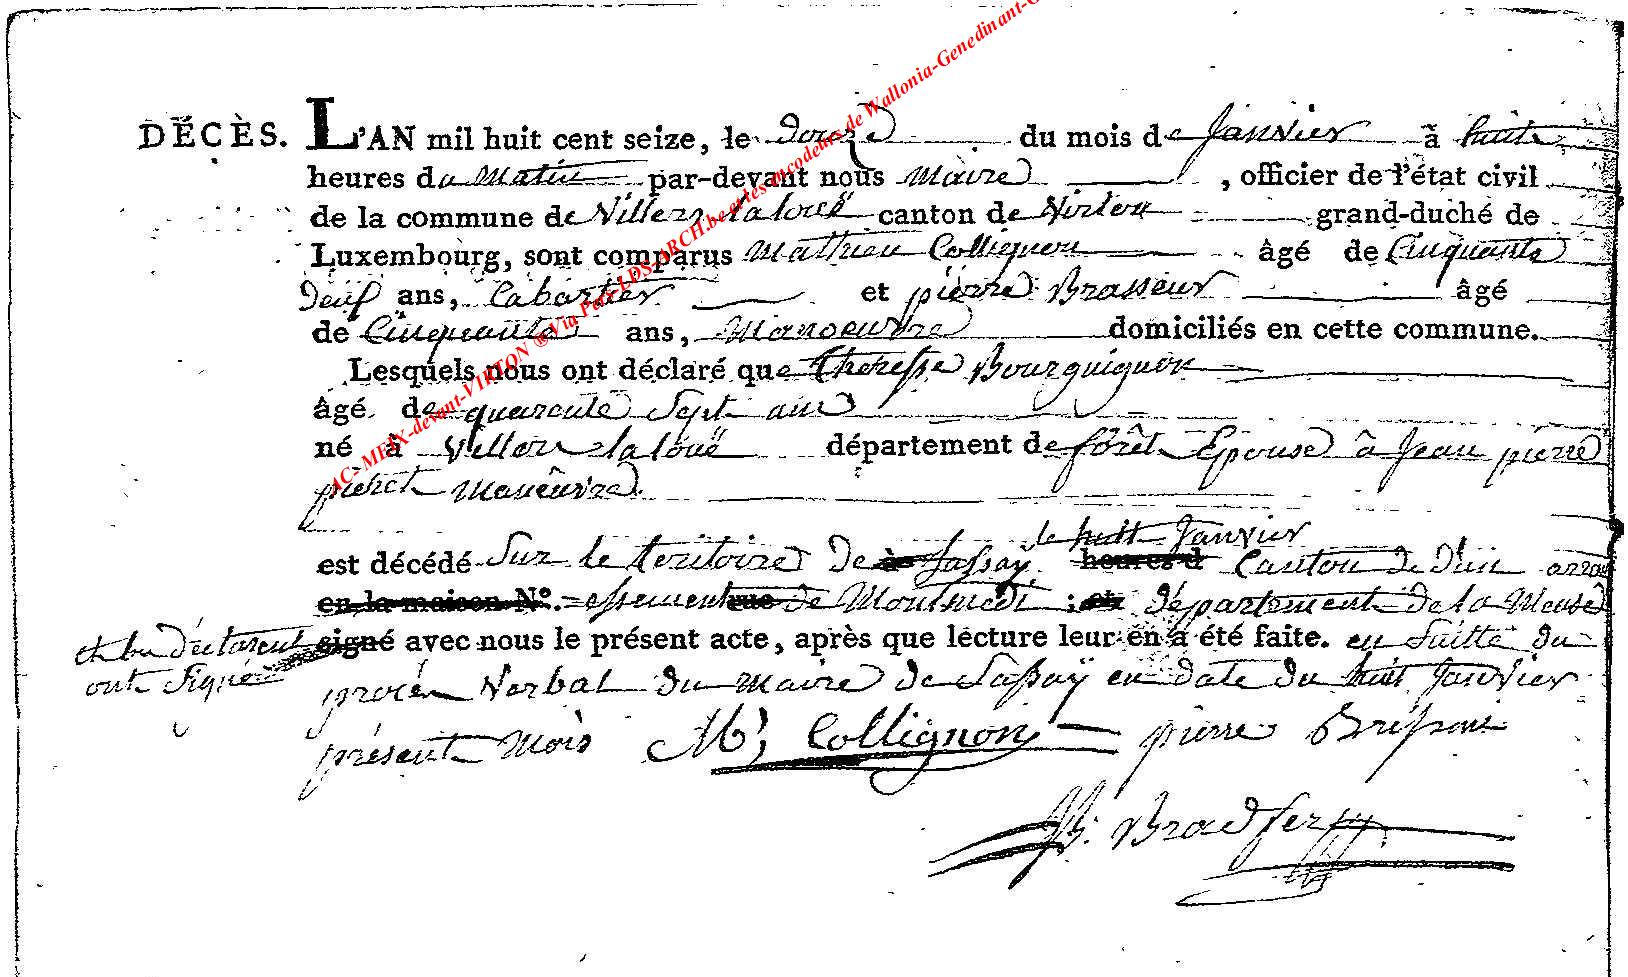 DÉCÈS. L'AN mil huit cent seize, le douze du mois de Janvier à huit
heures du Matin par-devant nous Maire , officier de l'état civil
de la commune de Villers laloüe canton de Virton grand-duché de
Luxembourg, sont comparus Mathieu Collignon âgé de Cinquante
Deuf ans, Cabartier et pierre Brasseur âgé
de Cinquante ans, Manoeuvre domiciliés en cette commune.
Lesquels nous ont déclaré que Theresse Bourguignon
âgé de quarente Sept ans
né à Villers laloüe département de forêt Epouse à Jean pierre
pierret Maneuvre.
le huit Janvier
est décédé Sur le teritoire de à Sassaÿ heures d Canton de Dun arron
en la maison N°. essement rue de Montmedi ; et département de la Meuse
et les déclarent signé avec nous le présent acte, après que lecture leur en a été faite. en Suitte du
ont Signé procés Verbal du Maire de Sassaÿ en date du huit Janvier
présent Mois M; Collignon pierre
Bradfer
AC- MEIX-devant-VIRTON ® Via Pex-LDS-ARCH.be et les encodeurs de Wallonia-Genedinant-G